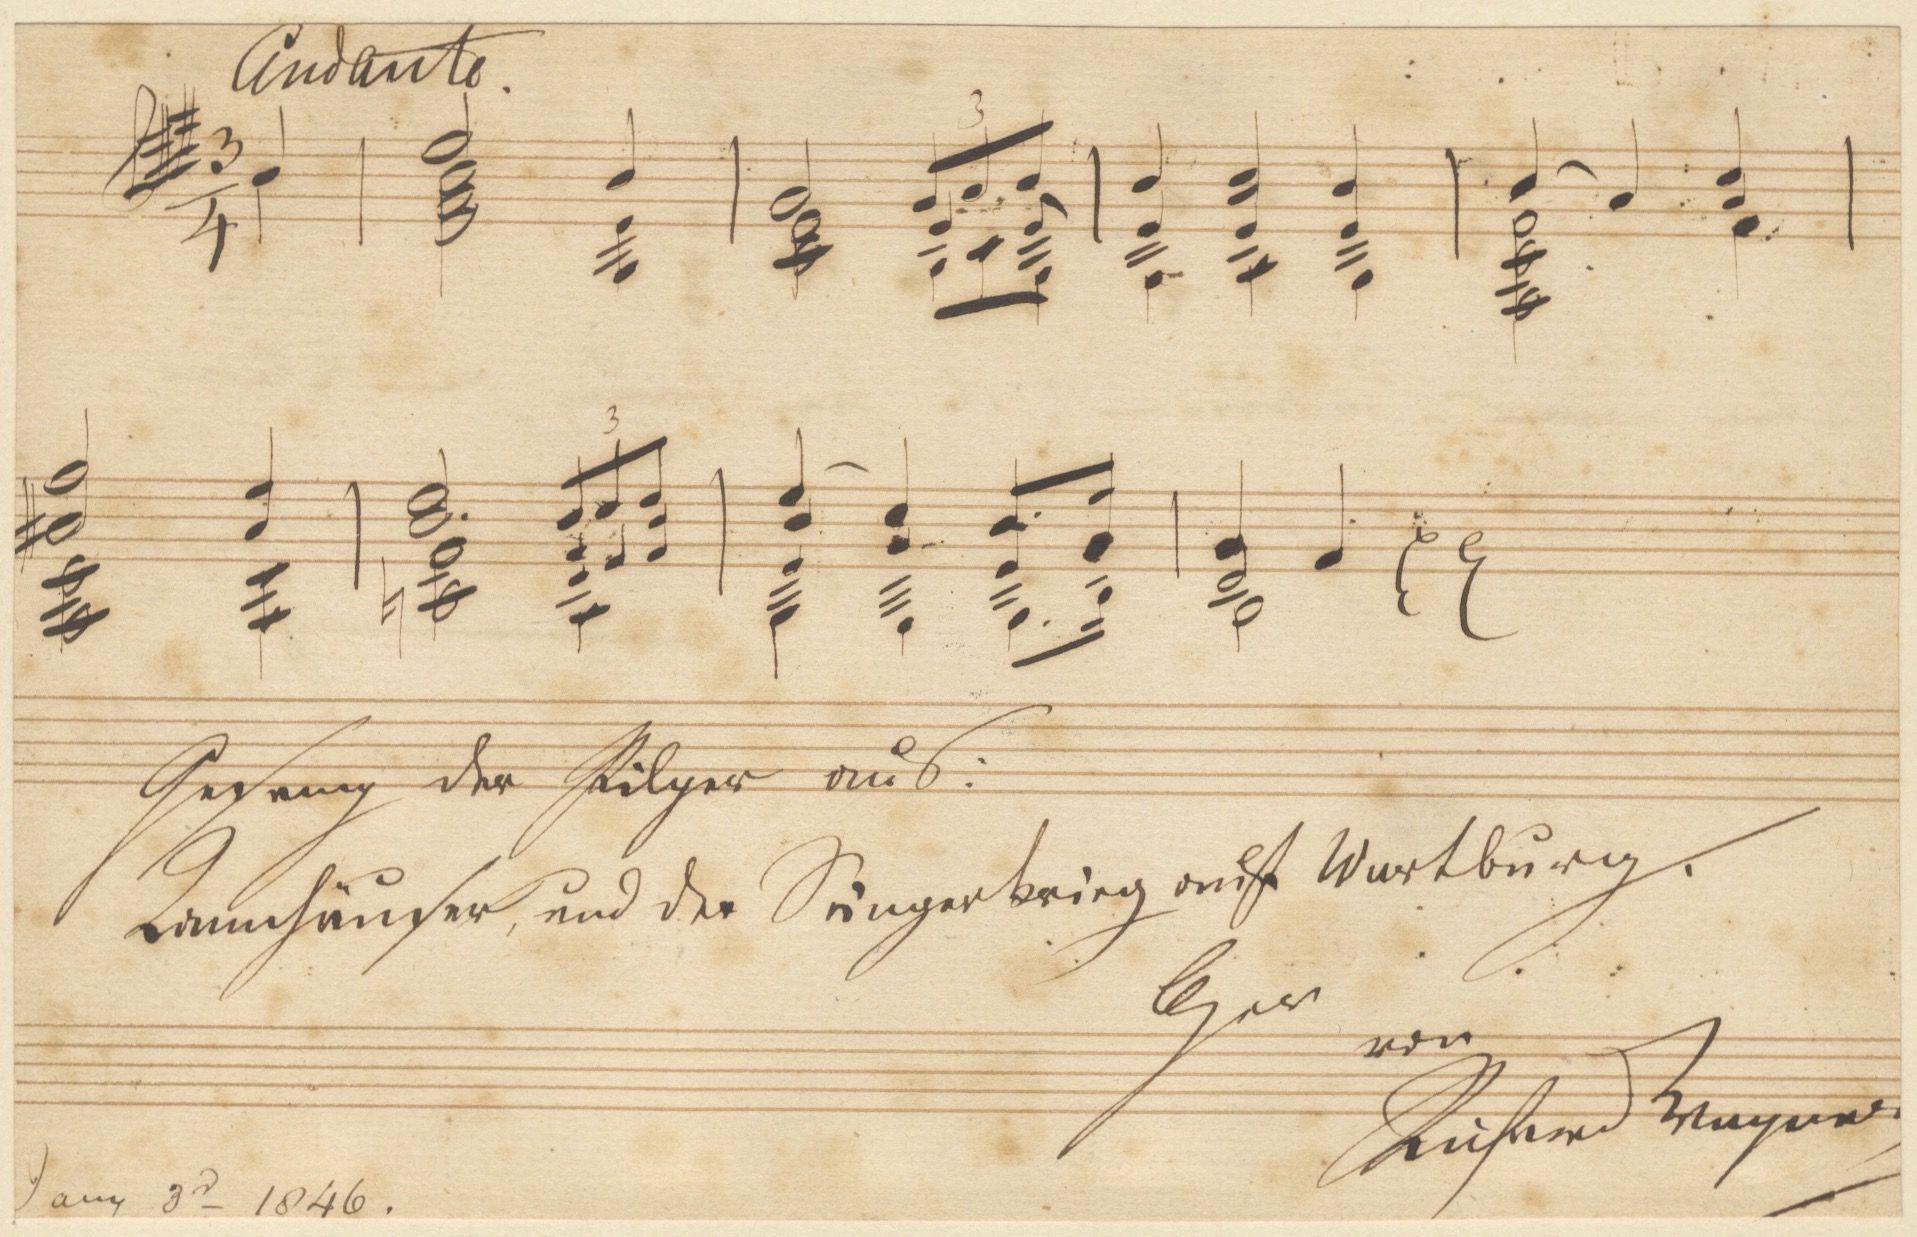 Andante.
3
4
3
3
Gesang der Pilger aus:
Tannhäuser, und der Sängerkrieg auf Wartburg.
Oper
von
Richard Wagner
Jany 3d 1846.